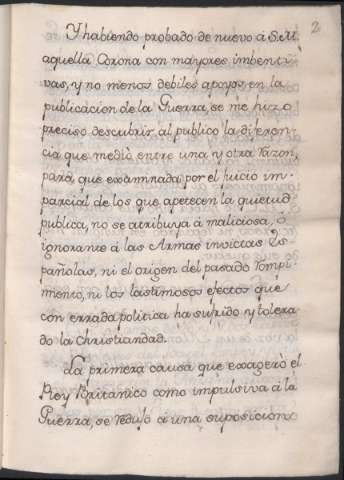 2
Y habiendo probado de nuevo á S.M.
aquella Corona con mayores imbenti-
vas, y no menos debiles apoyos, en la
publicacion de la Guerra, se me hizo
preciso descubrir al publico la diferen-
cia que mediò entre una y otra razon,
para, que examinada por el juicio im-
parcial de los que apetecen la quietud
publica, no se atribuya á maliciosa, ó
ignorante á las Armas invictas Es-
pañolas, ni el origen del pasado rompi-
miento, ni los lastimosos efectos que
con errada politica ha sufrido y tolera-
do la Christiandad.
La primera causa que exagerò el
Rey Britanico como impulsiva á la
Guerra, se redujo á una suposicion